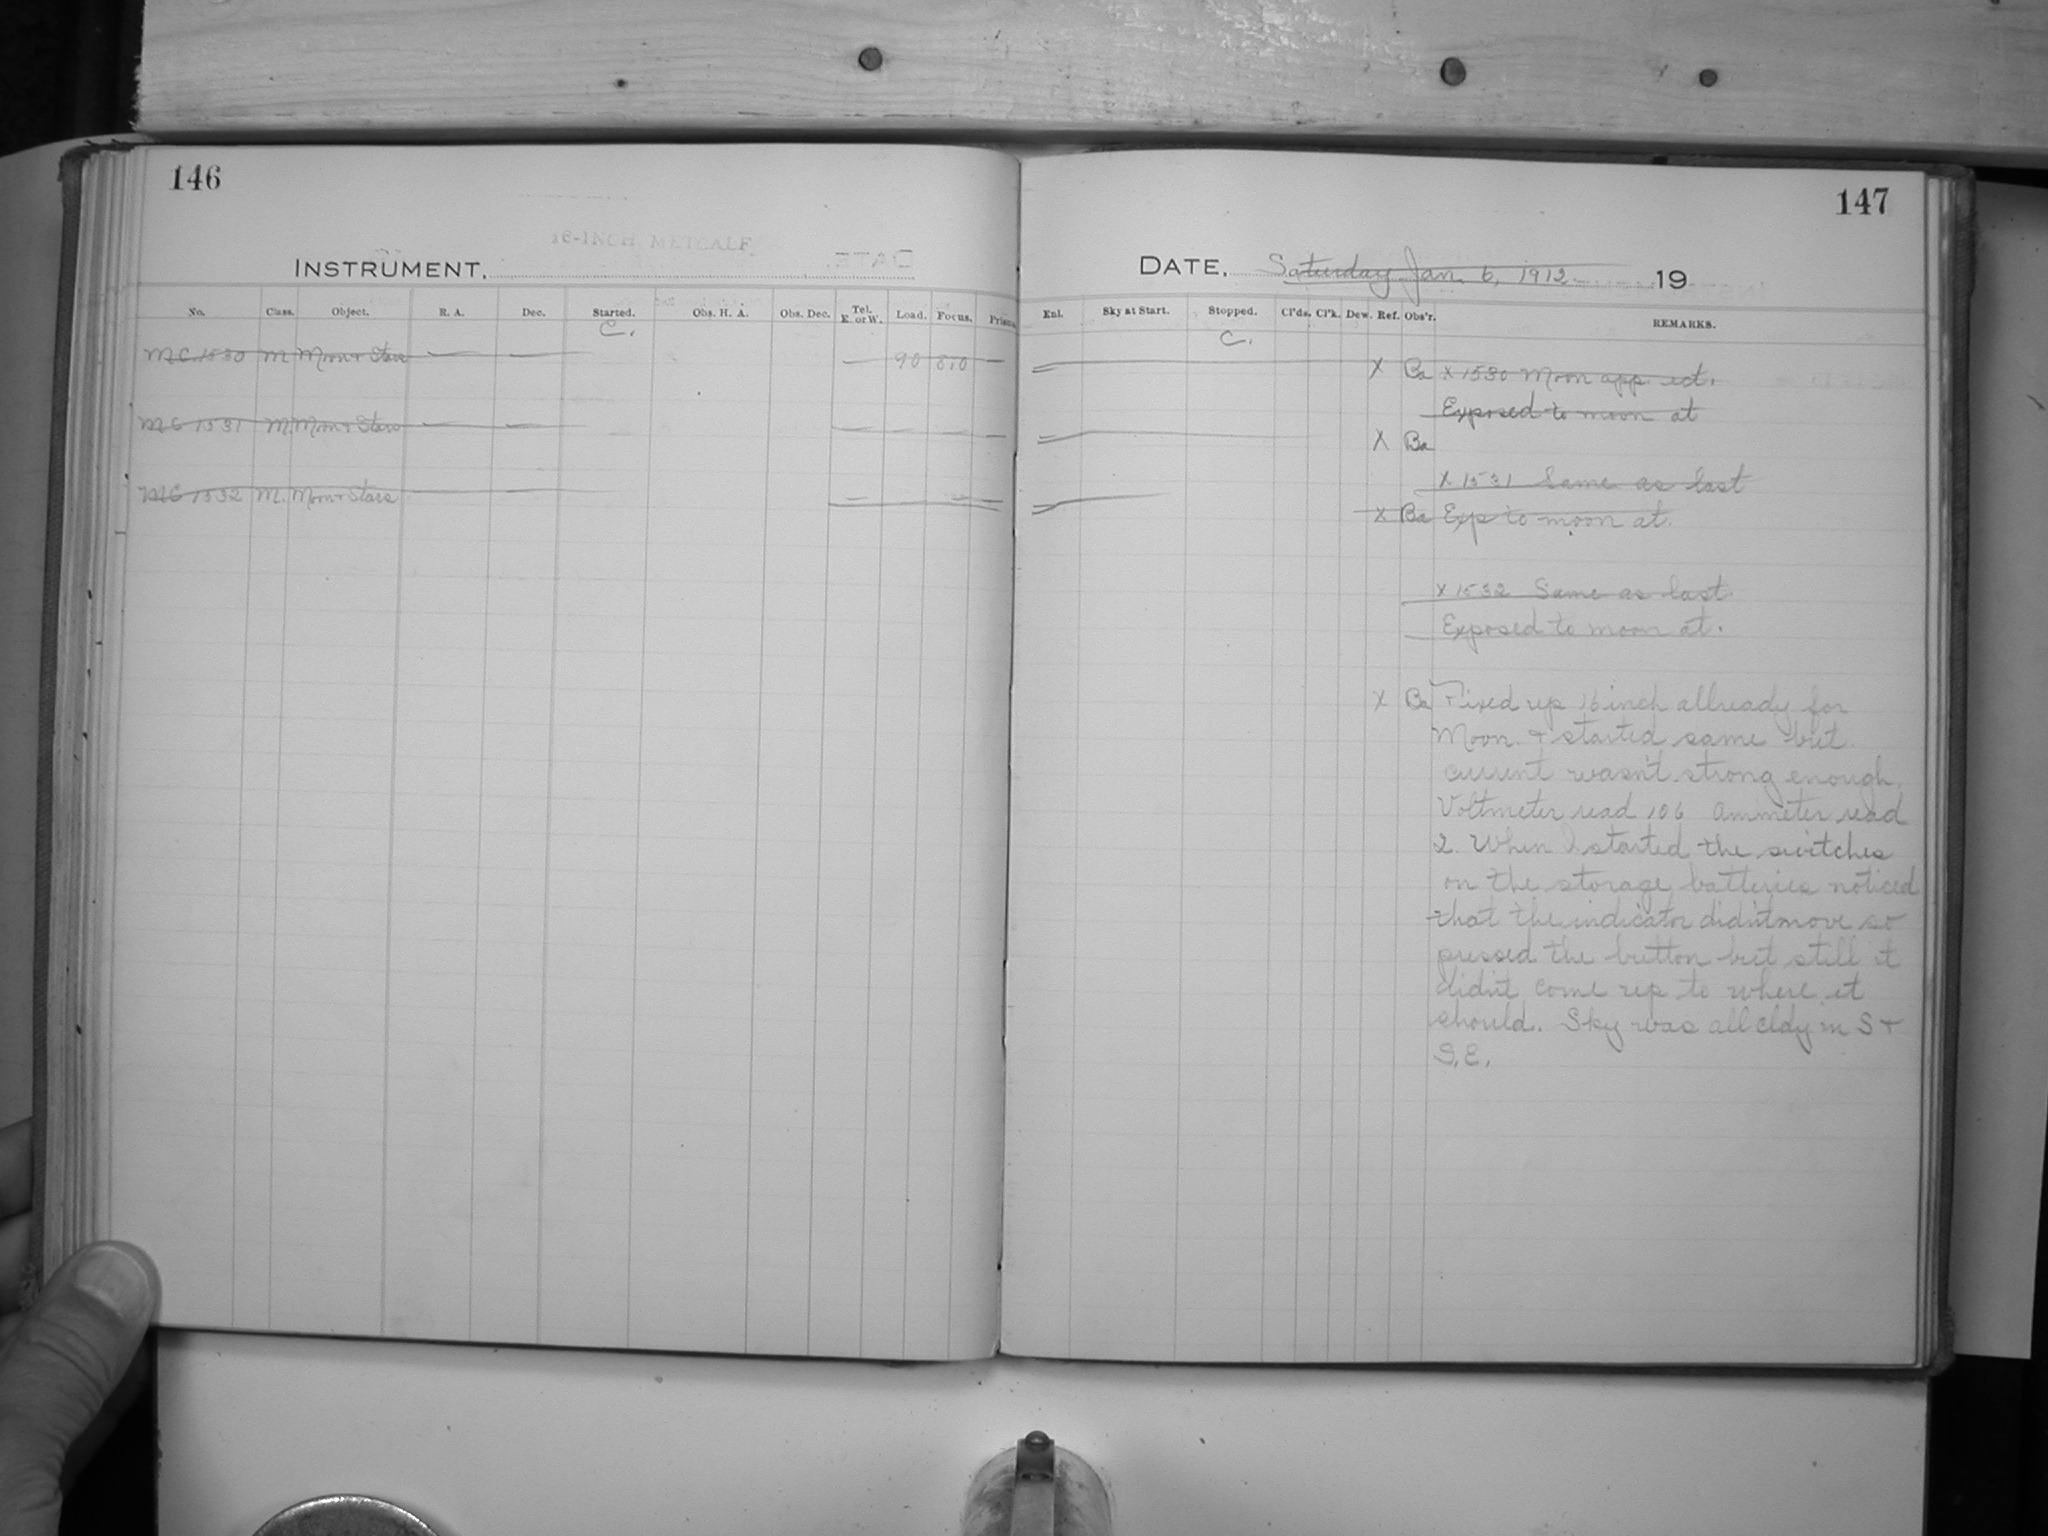 146
147
16-INCH METCALF
INSTRUMENT,
DATE, Saturday Jan. 6, 1912 19
No. Class. Object. R. A. Dec. Started. Obs. H. A. Obs. Dec. Tel. E. or W. Load. Focus. Prisms
Enl. Sky at Start. Stopped. Cl'ds. Cl'k. Dew. Ref. Obs'r. REMARKS.
C.
C.
MC 1530 M Moon & Stars — — — 90 8.0 —
X Ba X 1530 Moon app. ect.
Exposed to moon at
MC 1531 M. Moon & Stars — — — — — —
X Ba
X 1531 Same as last
MC 1532 M. Moon & Stars
X Ba Exp to moon at.
X 1532 Same as last
Exposed to moon at.
X Ba Fixed up 16 inch allready for
Moon. & started same but
current wasn't strong enough.
Voltmeter read 106 Ammeter read
2. When I started the switches
on the storage batteries noticed
that the indicator didn't move so
pressed the button but still it
didn't come up to where it
should. Sky was all cldy in S &
S.E.